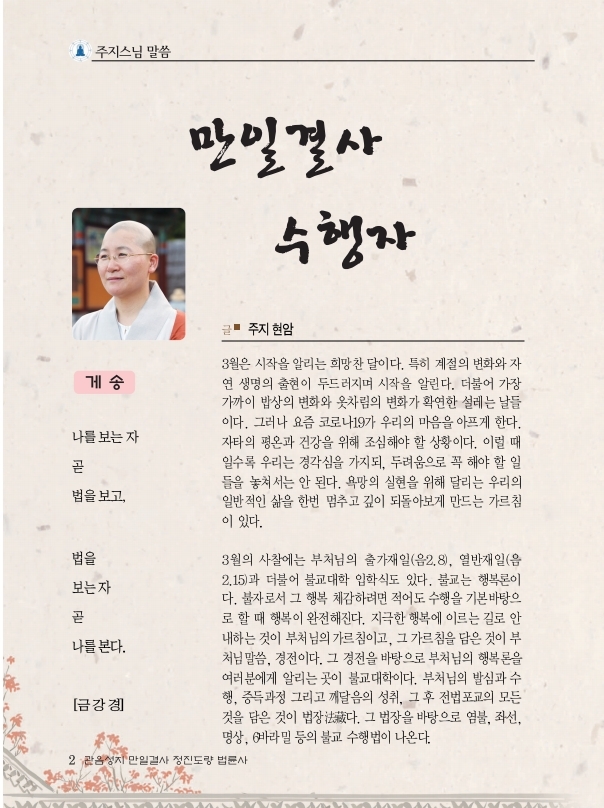 주지스님 말씀
만일결사
수행자
글 ■ 주지 현암
게 송
나를 보는 자
곧
법을 보고,
법을
보는 자
곧
나를 본다.
[금강경]
3월은 시작을 알리는 희망찬 달이다. 특히 계절의 변화와 자
연 생명의 출현이 두드러지며 시작을 알린다. 더불어 가장
가까이 밥상의 변화와 옷차림의 변화가 확연한 설레는 날들
이다. 그러나 요즘 코로나19가 우리의 마음을 아프게 한다.
자타의 평온과 건강을 위해 조심해야 할 상황이다. 이럴 때
일수록 우리는 경각심을 가지되, 두려움으로 꼭 해야 할 일
들을 놓쳐서는 안 된다. 욕망의 실현을 위해 달리는 우리의
일반적인 삶을 한번 멈추고 깊이 되돌아보게 만드는 가르침
이 있다.
3월의 사찰에는 부처님의 출가재일(음2.8), 열반재일(음
2.15)과 더불어 불교대학 입학식도 있다. 불교는 행복론이
다. 불자로서 그 행복 체감하려면 적어도 수행을 기본바탕으
로 할 때 행복이 완전해진다. 지극한 행복에 이르는 길로 안
내하는 것이 부처님의 가르침이고, 그 가르침을 담은 것이 부
처님말씀, 경전이다. 그 경전을 바탕으로 부처님의 행복론을
여러분에게 알리는 곳이 불교대학이다. 부처님의 발심과 수
행, 증득과정 그리고 깨달음의 성취, 그 후 전법포교의 모든
것을 담은 것이 법장法藏다. 그 법장을 바탕으로 염불, 좌선,
명상, 6바라밀 등의 불교 수행법이 나온다.
2 관음성지 만일결사 정진도량 법륜사